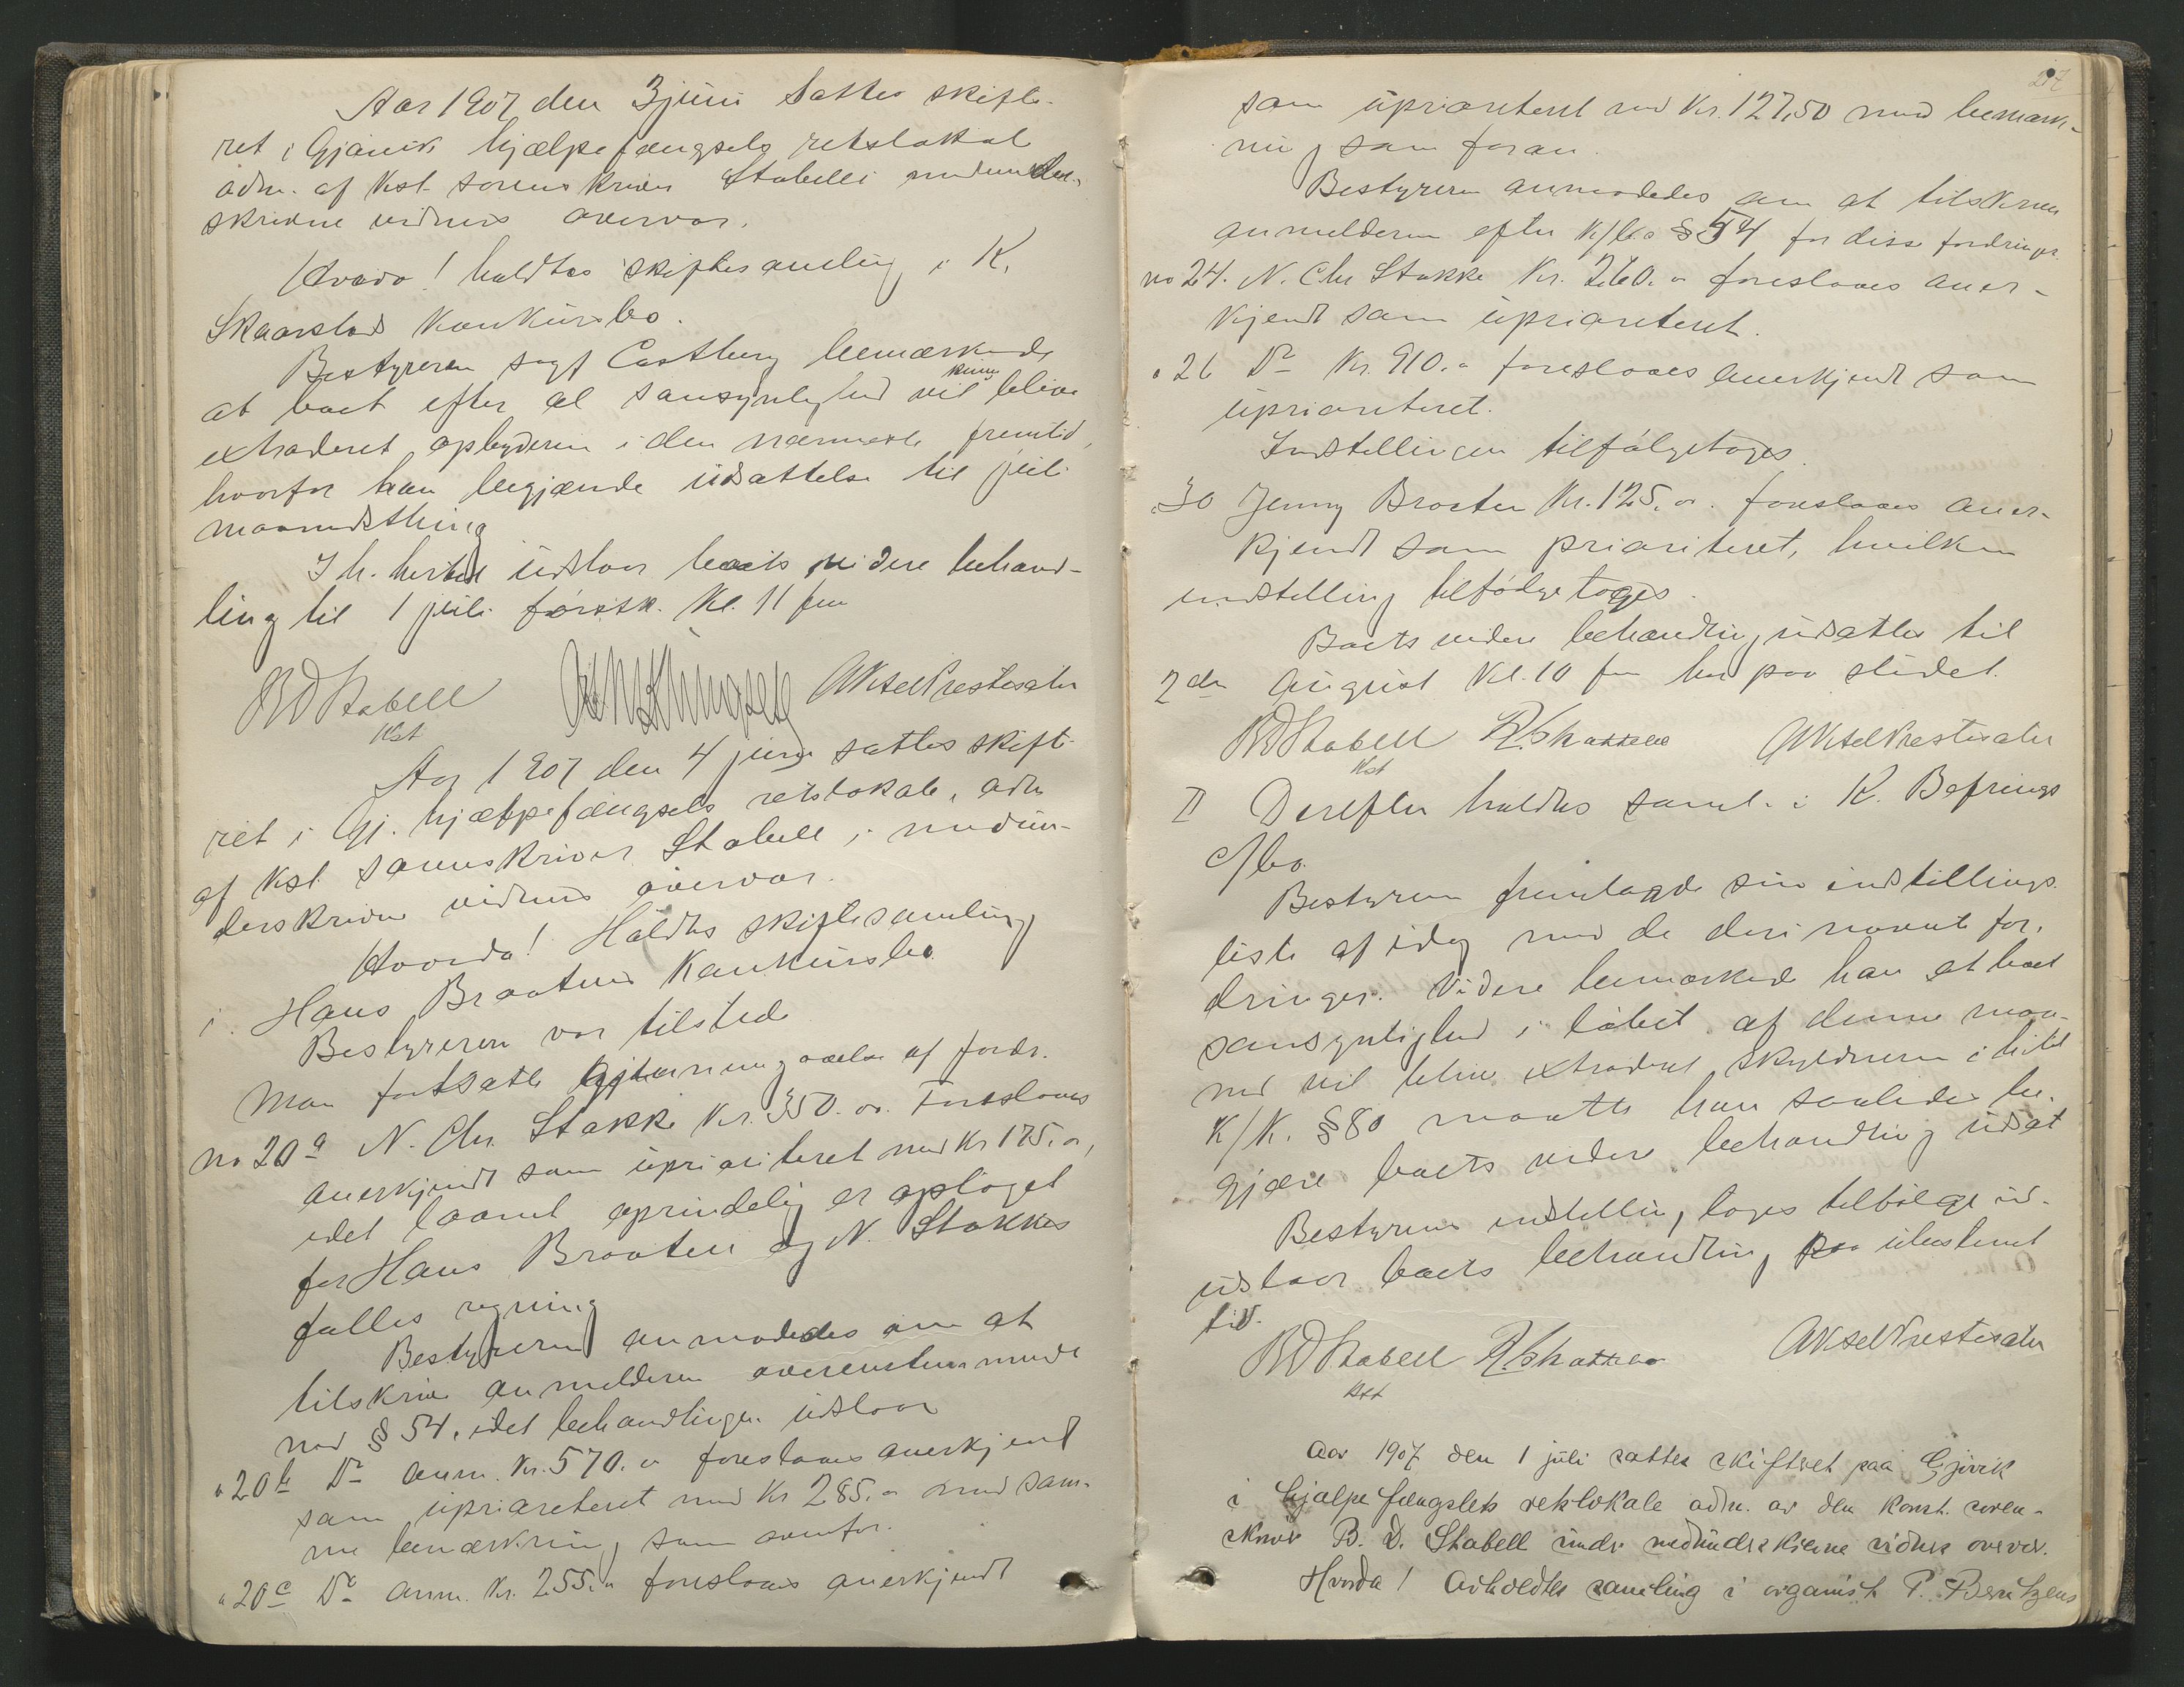 Aar 1907 den 3 juni sattes skifte-
ret i Gjøvik hjælpefængsels retslokal
adm. af kst. sorenskriver Stabell i nedenun-
skrevne vidners overvær.
Hvorda! holdtes skiftesamling i K.
Skaarslds konkursbo.
Bestyreren sagf Castberg bemærkede
at boet efter al sansynlighed vil kunne blive
extraderet opbyderen i den nærmeste fremtid,
hvorfor han begjærede udsættelse til juli
maanedsthing
I h. hertil udstaar boets videre behand-
ling til 1 juli førstk. Kl. 11 fm
BDStabell
Kst
Aksel Prestesæter
Aar 1907 den 4 juni sattes skifte-
ret i Gj. hjælpefængsels retslokale, adm
af kst. sorenskriver Stabell, i nedun-
derskrevne vidners overvær.
Hvorda! Holdtes skiftesamling
i Hans Braatens konkursbo
Bestyreren var tilstede
Man fortsatte gjennemgaaelse af fordr.
No 20a N. Chr. Stakke Kr. 350.oo. Foreslaaes
anerkjendt som uprioriteret med Kr 175.oo,
idet laanet oprindelig er optaget
for Hans Braaten og N. Stakkes
fælles regning
Bestyreren anmodedes om at
tilskrive anmelderen overenstemmende
med § 54, idet behandlingen udstaar
" 20b Do anm. Kr. 570.oo foreslaaes anerkjendt
som uprioriteret med Kr 285.oo med sam-
me bemærkning som ovenfor.
" 20c Do anm. Kr. 255.oo foreslaaes anerkjendt
27
som uprioriteret med Kr. 127,50 med bemærk-
ning som foran.
Bestyreren anmodedes om at tilskrive
anmelderen efter K/l. § 54 for disse fordringer.
No 24. N. Chr Stakke Kr. 260.oo foreslaaes aner-
kjendt som uprioriteret.
" 26 Do Kr. 910.oo foreslaaes anerkjendt som
uprioriteret.
Indstillingen tilfølgetoges.
" 30 Jenny Braaten Kr. 125.oo. foreslaaes aner-
kjendt som prioriteret, hvilken
indstilling tilfølgetoges.
Boets videre behandling udsattes til
2den august Kl. 10 fm her paa stedet.
BDStabell
Kst
Aksel Prestesæter
II Derefter holdtes saml. i K. Befrings
c/bo.
Bestyreren fremlagde sin indstillings
liste af idag med de deri nævnte for-
dringer. Videre bemærkede han at boet
sansynlighed i løbet af denne maa-
ned vil blive extraderet skyldneren i hehl
K/K. § 80 maatte han saaledes be-
gjære boets videre behandling udsat
Bestyrerens indstilling toges tilfølge ud-
udstaar boets behandling paa ubestemt
tid.
BDStabell
Kst
Aksel Prestesæter
Aar 1907 den 1 juli sattes skifteret paa Gjøvik
i hjælpefængslets retslokale adm. av den konst. soren-
skriver B. D. Stabell under nedunderskrevne vidners overvær.
Hvorda! Avholdtes samling i organist P. Berntzens